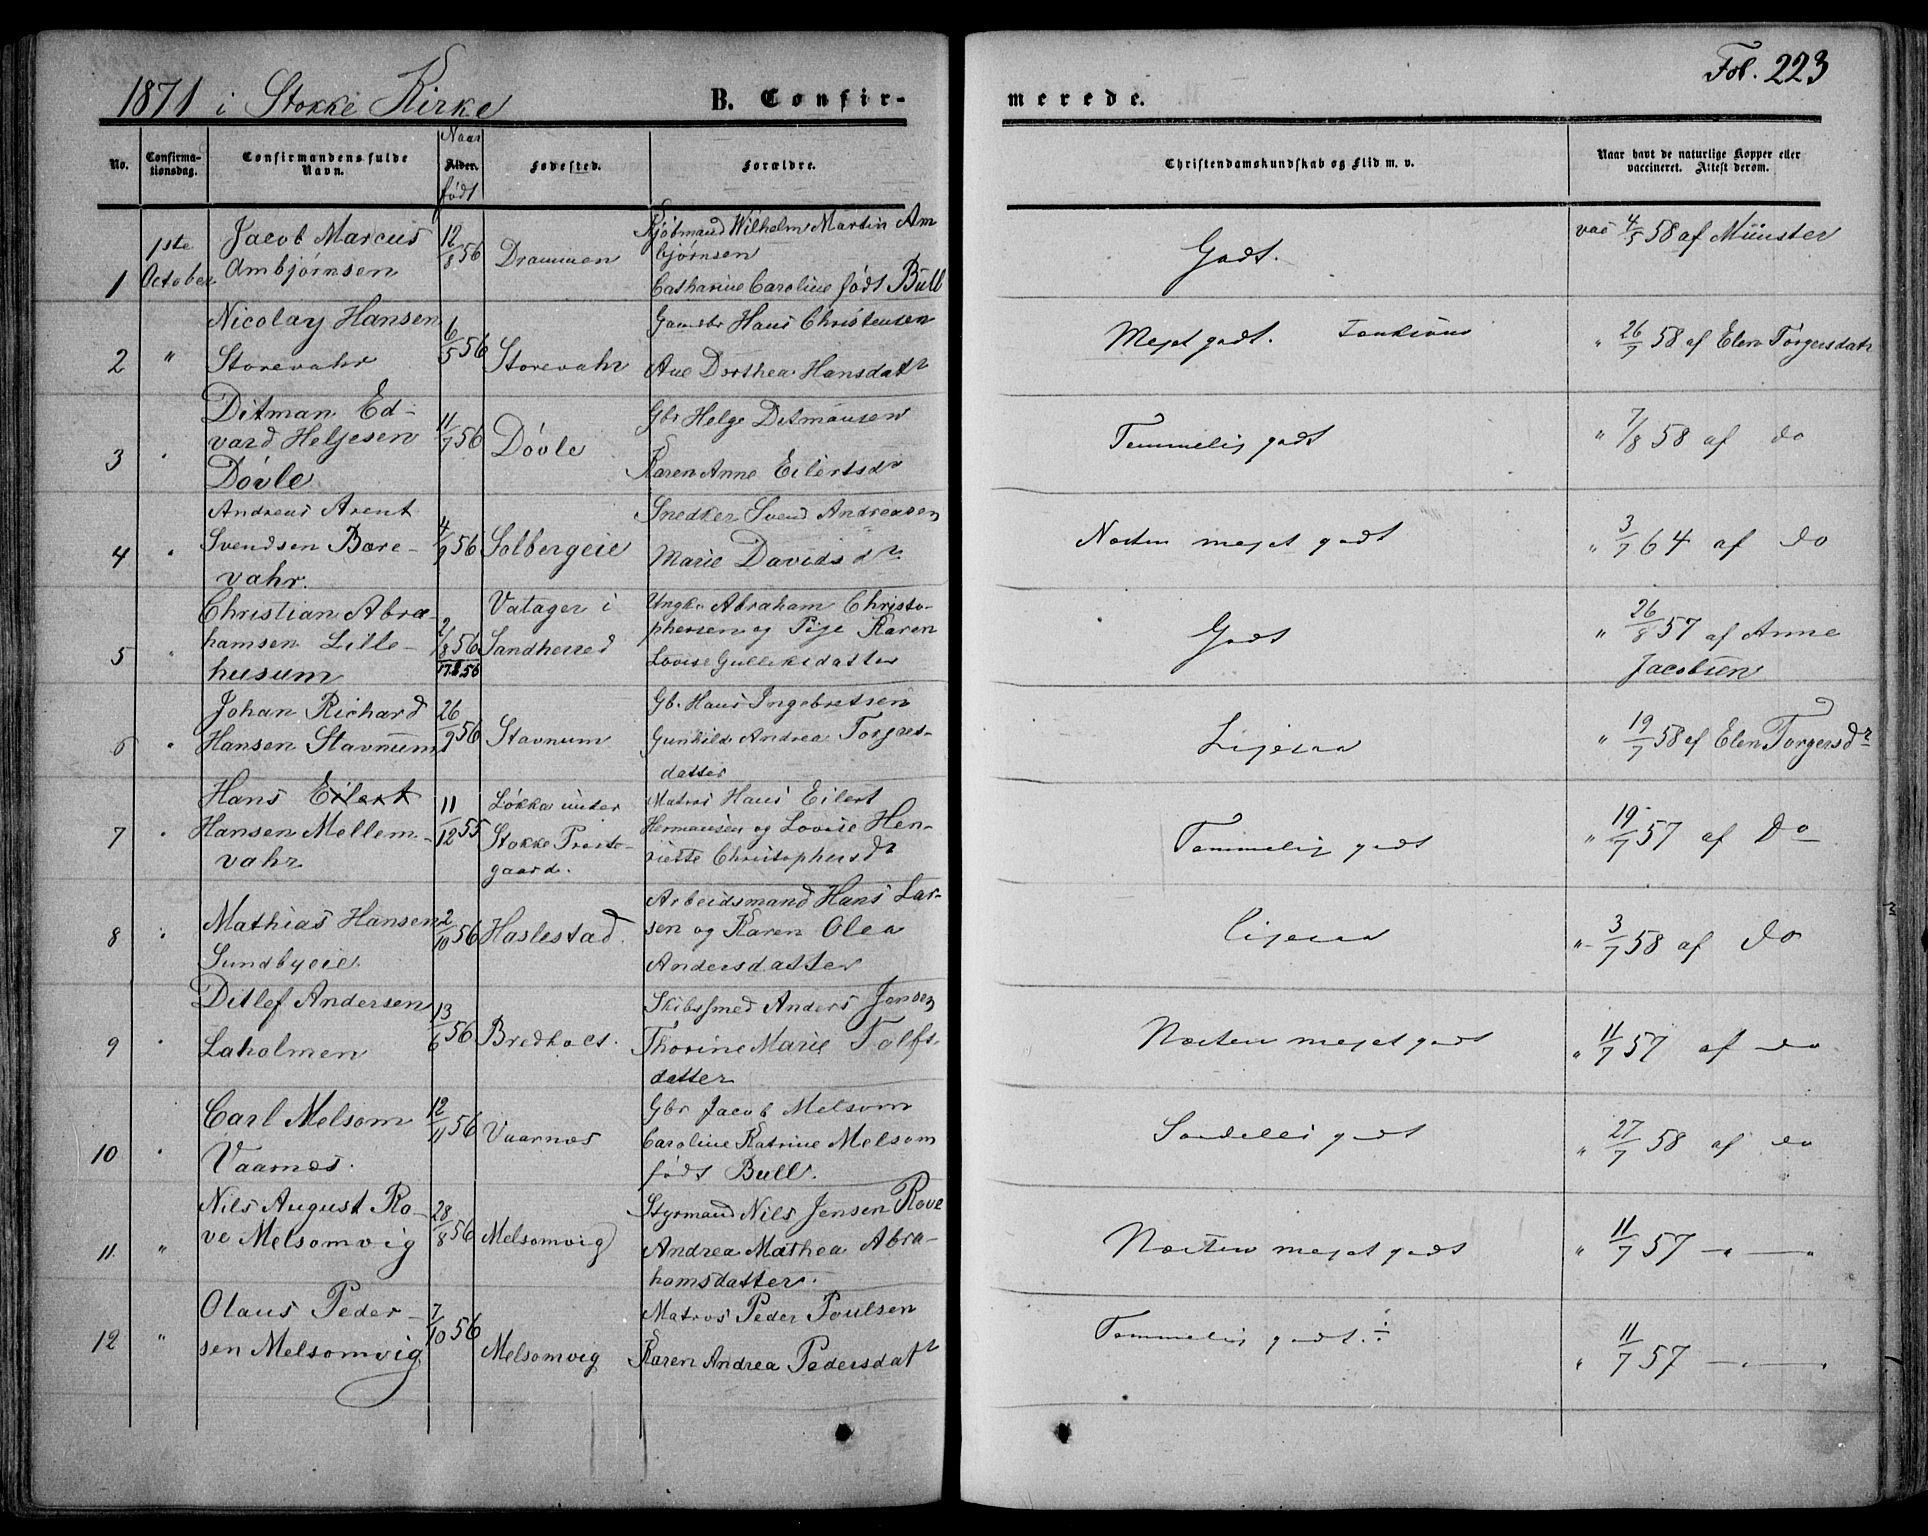 1871 i Stokke Kirke
B. Confir-
merede.
Fol. 223
No.
Confirma-
tionsdag.
Confirmandens fulde
Navn.
Naar
Alder.
født
Fødested.
Forældre.
Christendomskundskab og Flid m. v.
Naar havt de naturlige Kopper eller
vaccineret. Attest derom.
1
1ste
October
Jacob Marcus
Ambjørnsen
12/8 56
Drammen
Kjøbmand Wilhelm Martin Am
bjørnsen
Catharine Caroline født Bull
Godt.
vac 4/5 58 af Münster
2
"
Nicolay Hansen
Storevahr
6/5 56
Storevahr
Gaardbr Hans Christensen
Ane Dorthea Hansdatr
Meget godt.
" 26/7 58 af Elen Torgersdatr
3
"
Ditman Ed-
vard Heljesen
Døvle
11/7 56
Døvle
Gbr Helge Ditmansen
Karen Anne Eilertsdr
Temmelig godt
" 7/8 58 af do
4
"
Andreas Arent
Svendsen Bore-
vahr.
4/9 56
Solbergeie
Snedker Svend Andreasen
Marie Davidsdr.
Næsten meget godt
" 3/7 64 af do
5
"
Christian Abra
hamsen Lille-
husum
2/8 56
17.8 56
Vatager i
Sandherred
Ungk. Abraham Christo-
phersen og Pige Karen
Lovise Gulliksdatter
Godt
" 26/8 57 af Anne
Jacobsen
6
"
Johan Richard
Hansen Stavnum
26/9 56
Stavnum
Gb. Hans Ingebretsen
Gunhild Andrea Torgers-
datter
Ligesaa
" 19/7 58 af Elen Torgersdr
7
"
Hans Eilert
Hansen Mellem-
vahr
11/12 55
Løkka under
Stokke Præste-
gaard.
Matros Hans Eilert
Hermansen og Lovise Hen-
riette Christophersdr
Temmelig godt
" 19/7 57 af Do
8
"
Mathias Hansen
Sundbyeie
2/10 56
Haslestad.
Arbeidsmand Hans Lar-
sen og Karen Olea
Andersdatter
Ligesaa
" 3/7 58 af do
9
"
Ditlef Andersen
Laholmen
13/6 56
Bredholt.
Skibssmed Anders Jensen
Thorine Marie Tolfs-
datter
Næsten meget godt
" 11/7 57 af do
10
"
Carl Melsom
Vaarnæs.
12/11 56
Vaarnæs
Gbr Jacob Melsom
Caroline Katrine Melsom
født Bull.
Særdeles godt
" 27/7 58 af do
11
"
Nils August Ro-
ve Melsomvig
28/8 56
Melsomvig
Styrmand Nils Jensen Rove
Andrea Mathea Abra-
hamsdatter.
Næsten meget godt
" 11/7 57 - " -
12
"
Olaus Peder-
sen Melsomvig
7/10 56
Melsomvig
Matros Peder Poulsen
Karen Andrea Pedersdatr
Temmelig godt.
" 11/7 57 - " -